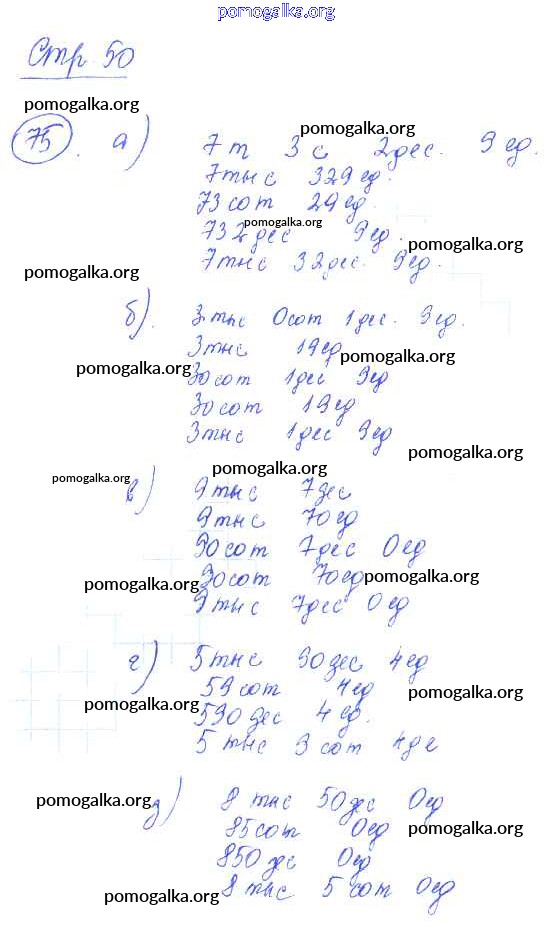 pomogalka.org
Стр. 50
pomogalka.org
75. а) 7 т 3 с 2 дес. 9 ед.
pomogalka.org
7 тыс 329 ед.
73 сот 29 ед.
pomogalka.org
732 дес 9 ед.
pomogalka.org
7 тыс 32 дес. 9 ед.
pomogalka.org
б). 3 тыс 0 сот 1 дес. 9 ед.
3 тыс 19 ед
pomogalka.org
pomogalka.org
30 сот 1 дес 9 ед
30 сот 19 ед
3 тыс 1 дес 9 ед
pomogalka.org
pomogalka.org
pomogalka.org
в) 9 тыс 7 дес
9 тыс 70 ед
90 сот 7 дес 0 ед
90 сот 70 ед
pomogalka.org
pomogalka.org
9 тыс 7 дес 0 ед
г) 5 тыс 90 дес 4 ед
59 сот 4 ед
pomogalka.org
pomogalka.org
590 дес 4 ед.
5 тыс 9 сот 4 де
pomogalka.org
д) 8 тыс 50 дес 0 ед
85 сот 0 ед
pomogalka.org
850 дес 0 ед
8 тыс 5 сот 0 ед
pomogalka.org